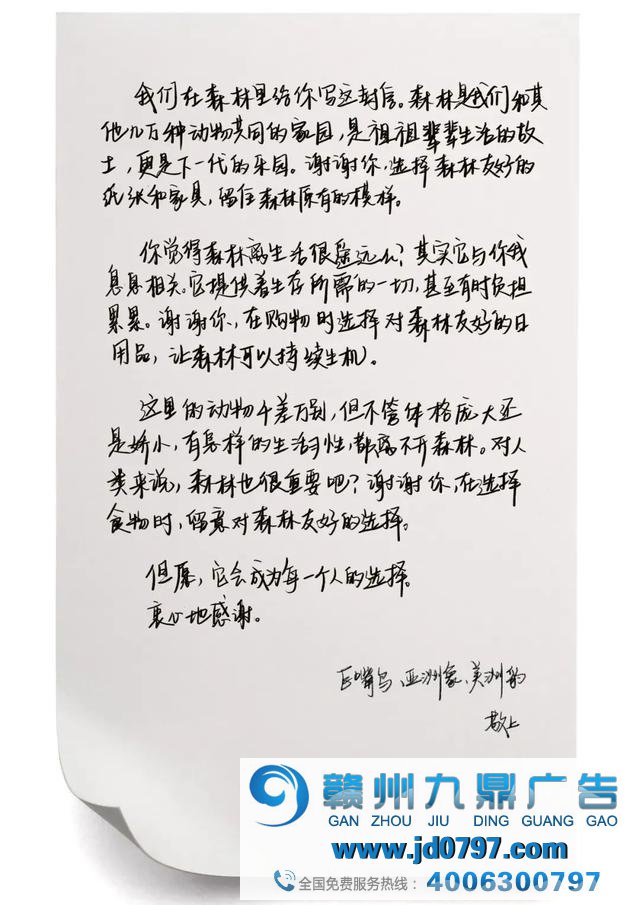 我们在森林里给你写这封信。森林是我们和其
他几万种动物共同的家园，是祖祖辈辈生活的故
土，更是下一代的乐园。谢谢你，选择森林友好的
纸张和家具，留住森林原有的模样。
你觉得森林离生活很遥远么？其实它与你我
息息相关。它提供着生存所需的一切，甚至有时负担
累累。谢谢你，在购物时选择对森林友好的日
用品，让森林可以持续生机。
这里的动物千差万别，但不管体格庞大还
是娇小，有怎样的生活习性，都离不开森林。对人
类来说，森林也很重要吧？谢谢你，在选择
食物时，留意对森林友好的选择。
但愿，它会成为每一个人的选择。
衷心地感谢。
巨嘴鸟、亚洲象、美洲豹
敬上
赣州九鼎广告
GAN ZHOU JIU DING GUANG GAO
www.jd0797.com
全国免费服务热线：4006300797